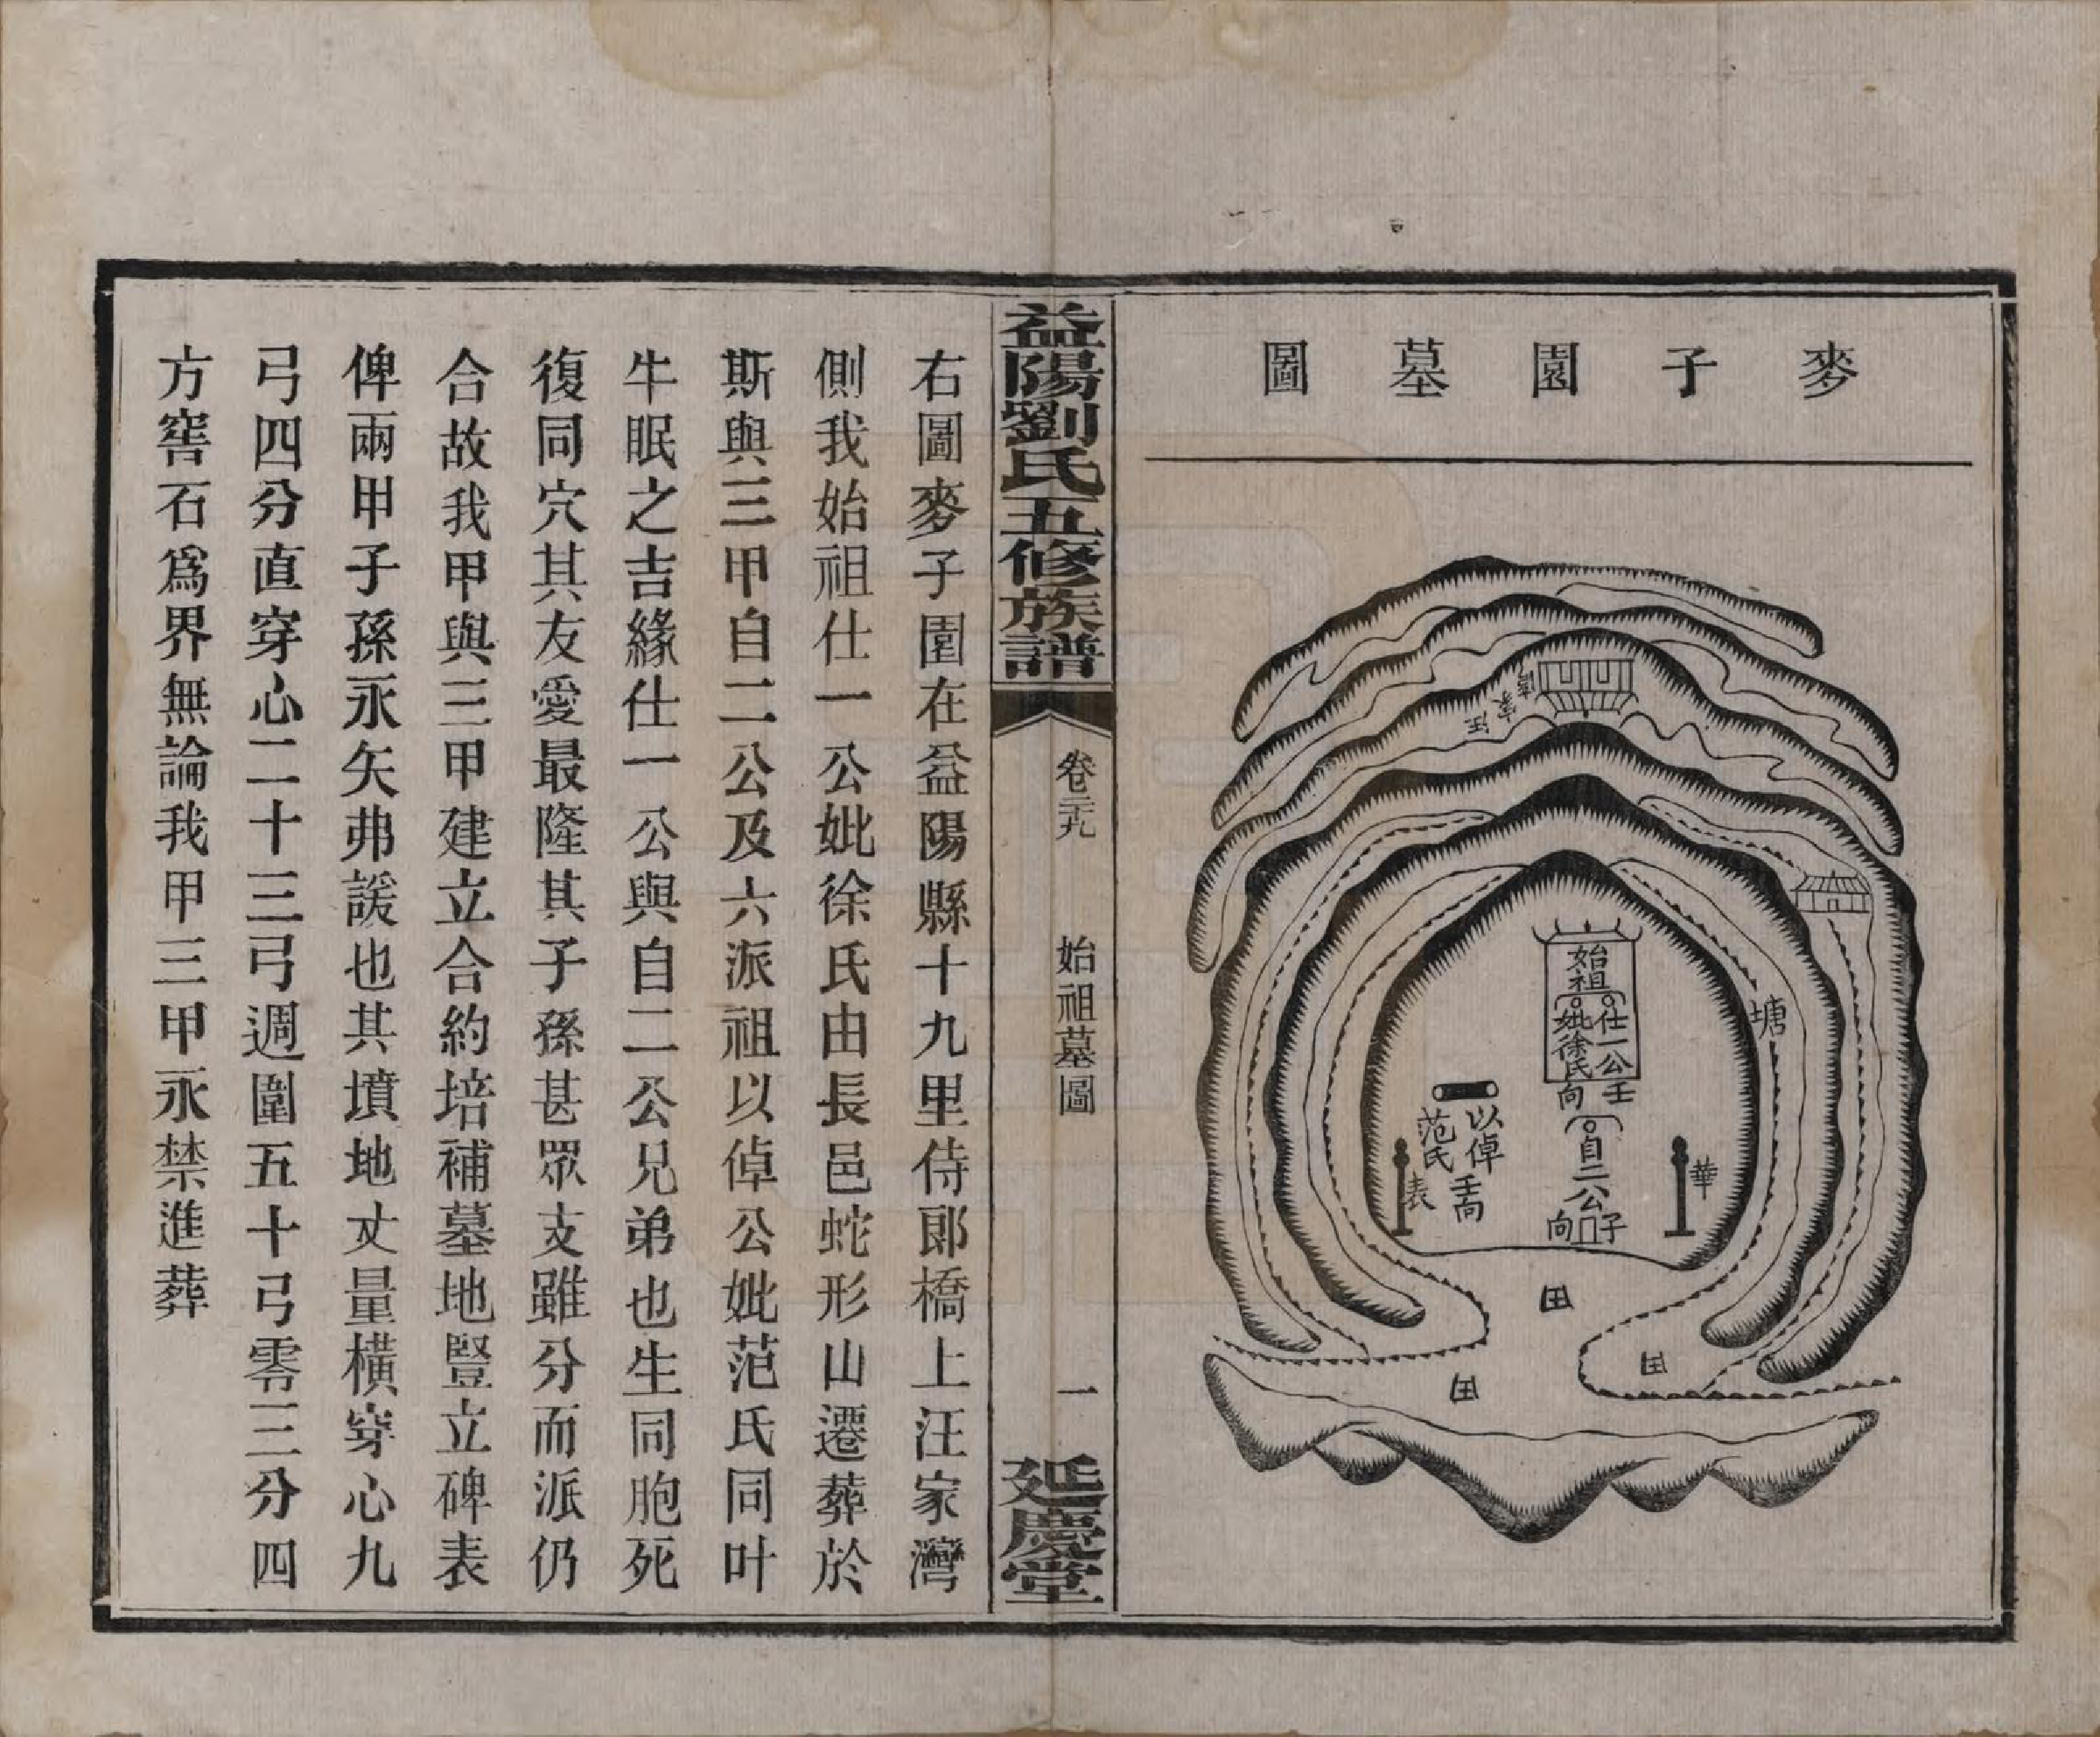 麥子園墓圖
汪家灣
塘
始祖
仕一公壬
妣徐氏向
自二公
子
向
以倬
范氏
壬向
華
表
田
田
田
益陽劉氏五修族譜
卷三十九
始祖墓圖
一
延慶堂
右圖麥子園在益陽縣十九里侍郎橋上汪家灣
側我始祖仕一公妣徐氏由長邑蛇形山遷葬於
斯與三甲自二公及六派祖以倬公妣范氏同叶
牛眠之吉緣仕一公與自二公兄弟也生同胞死
復同穴其友愛最隆其子孫甚眾支雖分而派仍
合故我甲與三甲建立合約培補墓地豎立碑表
俾兩甲子孫永矢弗諼也其墳地丈量橫穿心九
弓四分直穿心二十三弓週圍五十弓零三分四
方窖石為界無論我甲三甲永禁進葬